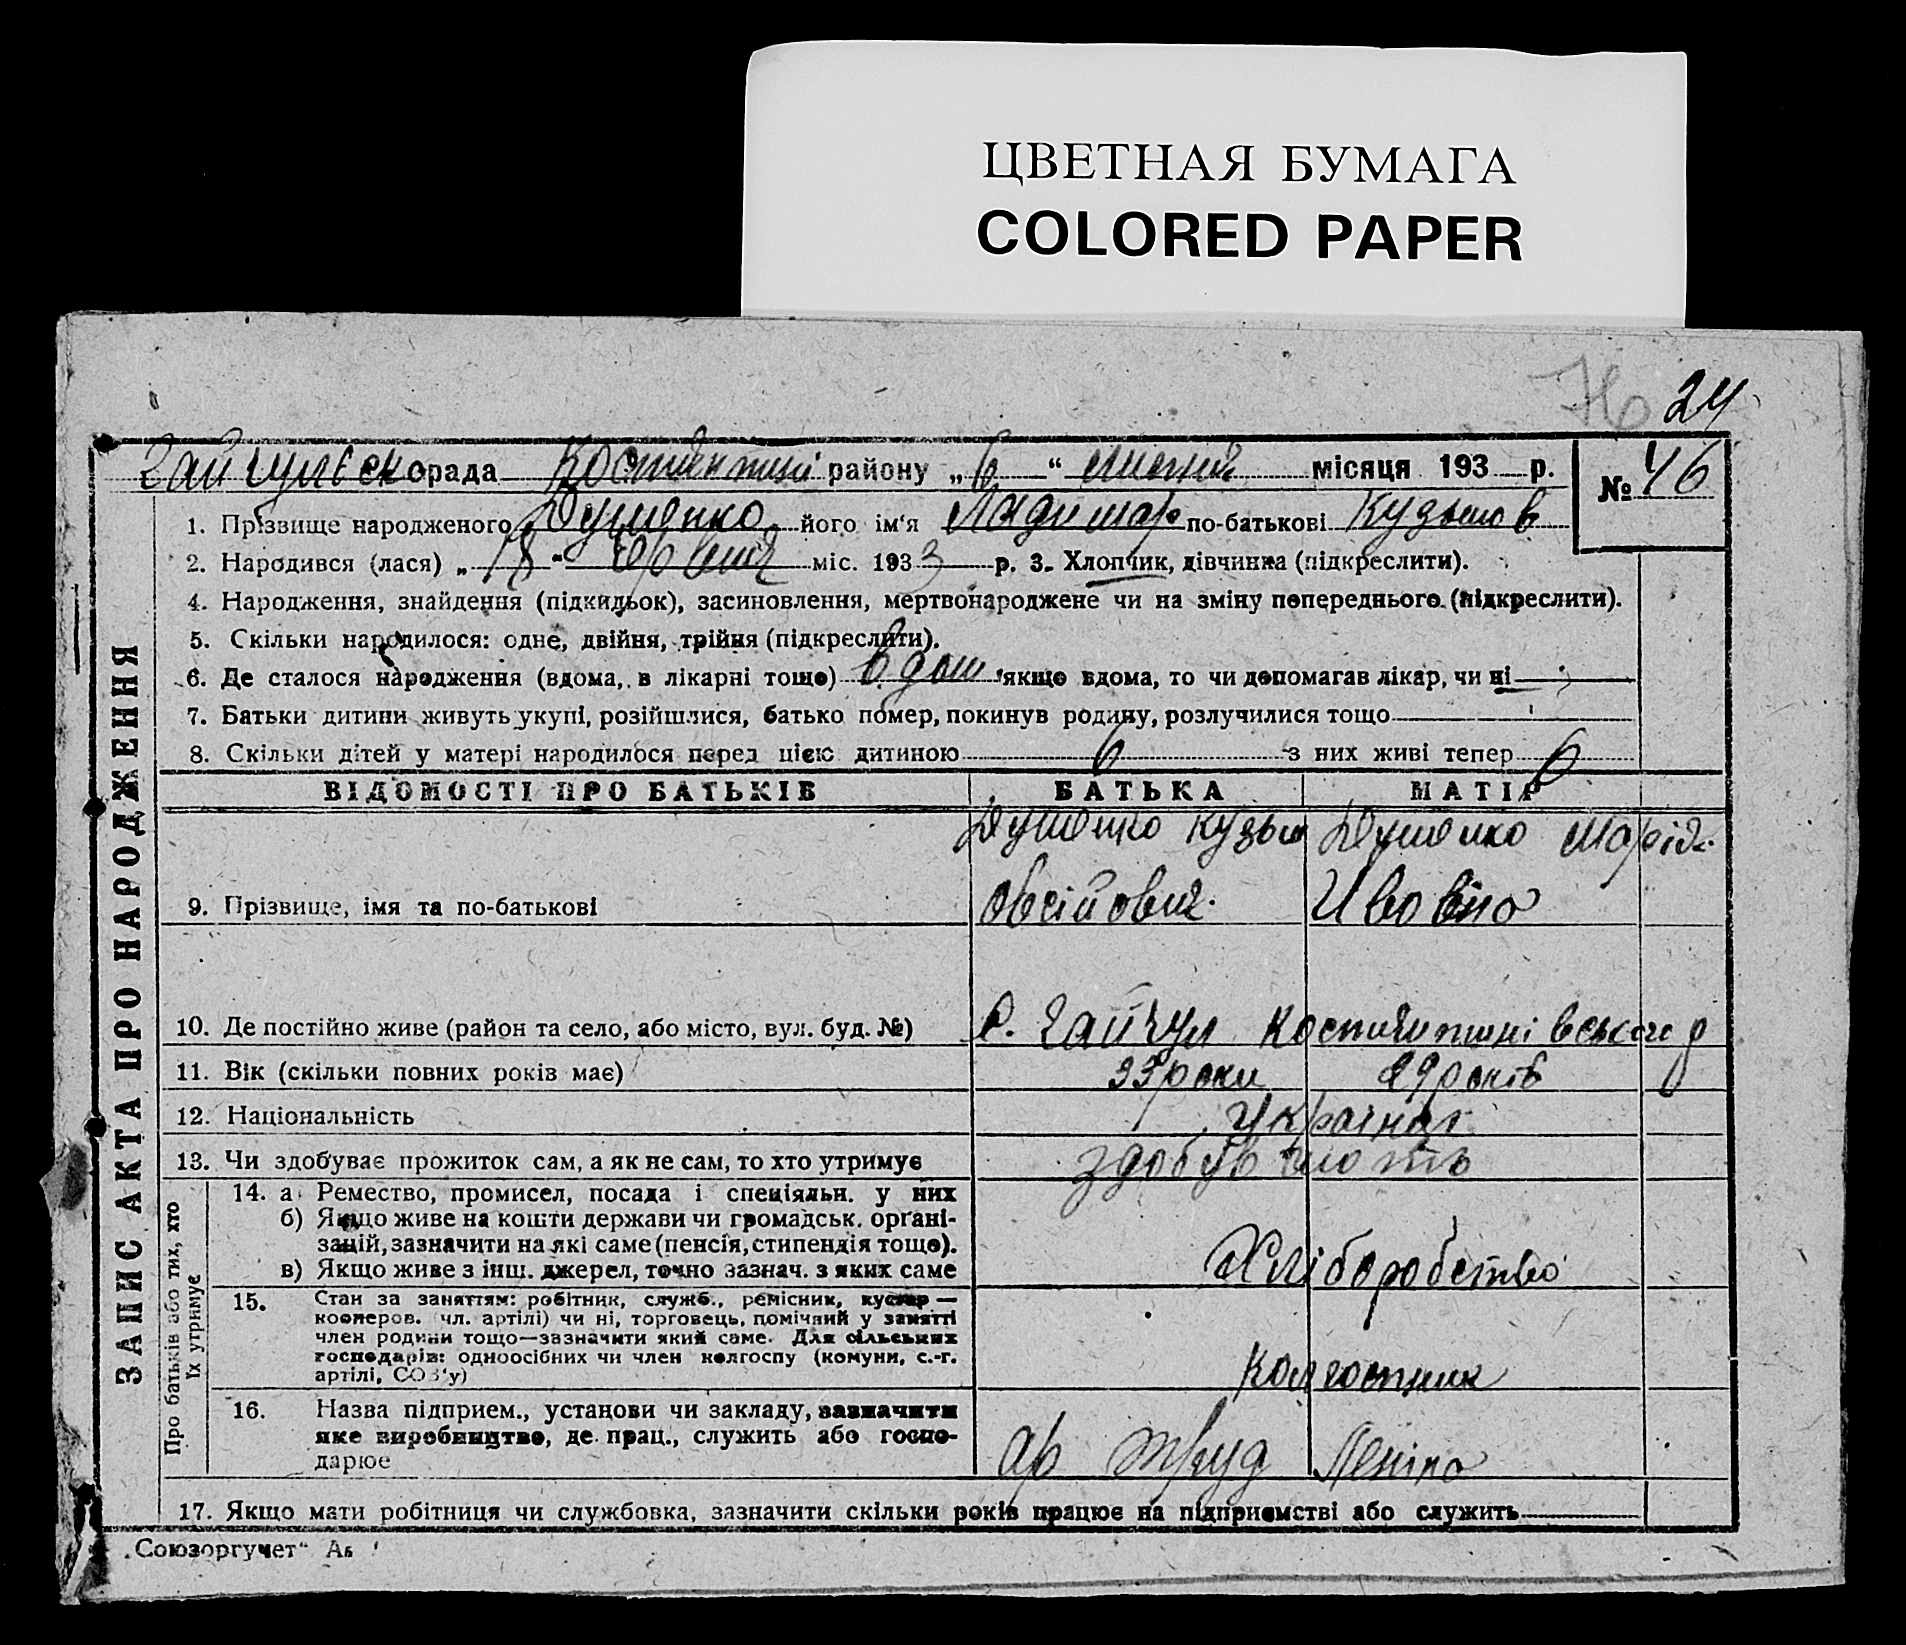 ЦВЕТНАЯ БУМАГА
COLORED PAPER
24
Гайчулєск орада Костянтині району „ 6 “ липня місяця 193 р.
№ 46
1. Прізвище народженого Душенко його ім‘я Ладимар по-батькові Кузьмов
2. Народився (лася) „ 18 “ червня міс. 1933 р. 3. Хлопчик, дівчинка (підкреслити).
4. Народження, знайдення (підкидьок), засиновлення, мертвонароджене чи на зміну попереднього (підкреслити).
5. Скільки народилося: одне, двійня, трійня (підкреслити).
6. Де сталося народження (вдома, в лікарні тощо) в дом якщо вдома, то чи допомагав лікар, чи ні
7. Батьки дитини живуть укупі, розійшлися, батько помер, покинув родину, розлучилися тощо
8. Скільки дітей у матері народилося перед цією дитиною 6 з них живі тепер 6
ЗАПИС АКТА ПРО НАРОДЖЕННЯ
ВІДОМОСТІ ПРО БАТЬКІВ БАТЬКА МАТІР
Душенко Кузьм Душенко Марія
9. Прізвище, імя та по-батькові Овсійович Ивовна
10. Де постійно живе (район та село, або місто, вул. буд. №) с. Гайчул Костянтинівського р
11. Вік (скільки повних років має) 33 роки 29 років
12. Національність Українці
13. Чи здобуває прожиток сам, а як не сам, то хто утримує здобувають
Про батьків або тих, хто
їх утримує
14. а Ремество, промисел, посада і спеціяльн. у них
б) Якщо живе на кошти держави чи громадськ. орґані-
зацій, зазначити на які саме (пенсія, стипендія тощо).
в) Якщо живе з інш. джерел, точно зазнач. з яких саме Хліборобство
15. Стан за заняттям: робітник, служб., ремісник, кустар —
кооперов. чл. артілі) чи ні, торговець, помічний у занятті
член родини тощо—зазначити який саме. Для сільських
господарів: одноосібних чи член колгоспу (комуни, с.-г.
артілі, СОЗ‘у) Колгоспник
16. Назва підприєм., установи чи закладу, зазначити
яке виробництво, де прац., служить або госпо-
дарює ар труд Леніна
17. Якщо мати робітниця чи службовка, зазначити скільки років працює на підприємстві або служить
„Союзоргучет“